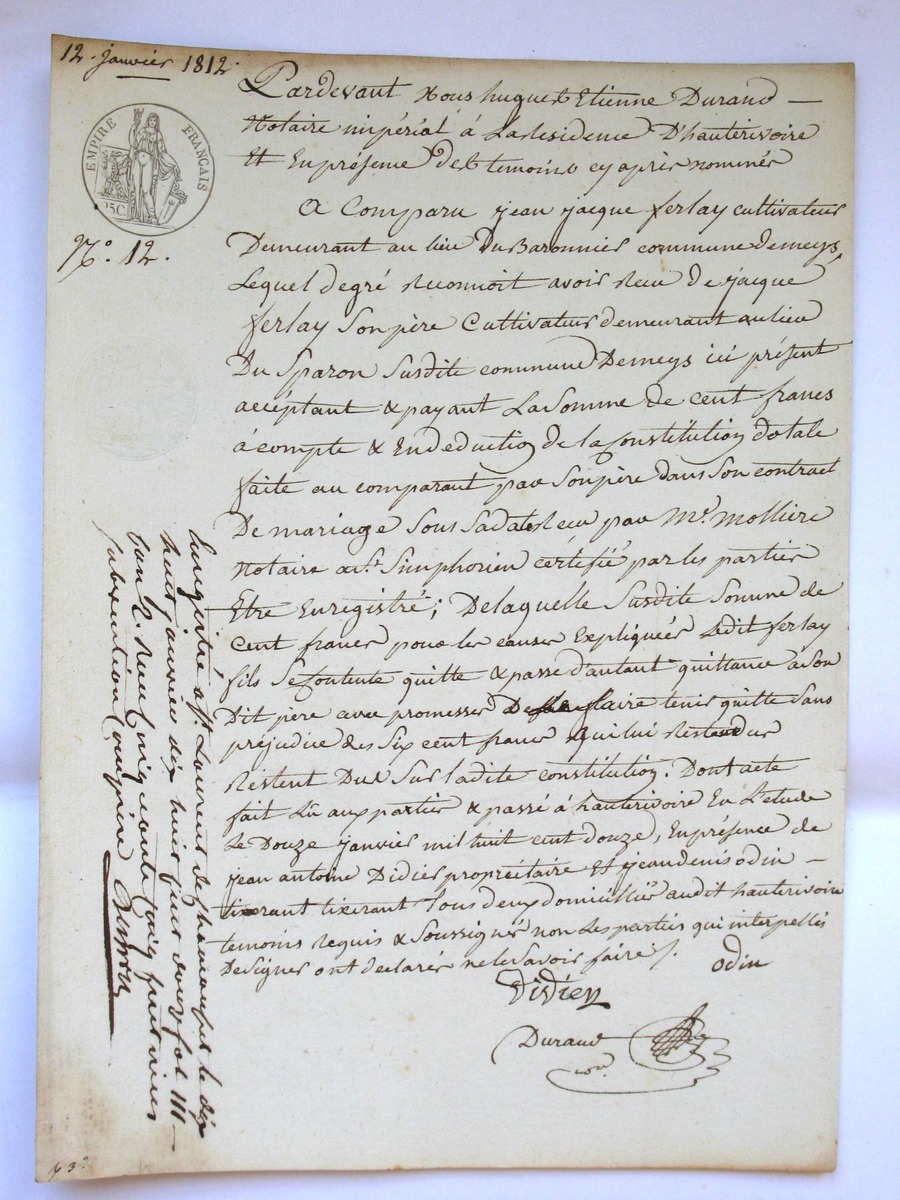 12. janvier 1812.
EMPIRE FRANÇAIS
25C.
N.o 12.
Pardevant Nous hugues Etienne Durand —
Notaire impérial à La Residence D'hauterivoire
Et En présence des temoins cy après nommés
A Comparu jean jacque ferlay cultivateur
Demeurant au lieu Du Baronnier commune demeys,
Lequel degré reconnoit avoir Recu de jacque
ferlay Son père Cultivateur demeurant au lieu
Du Sparon Susdite commune Demeys ici présent
accéptant & payant La Somme de cent francs
à compte & En deduction de la Constitution dotale
faite au comparant par Son père dans Son contract
De mariage Sous Sa date Recu par M.e Molliere
Notaire a S.t Simphorien certifié par les partier
Etre Enregistré; De laquelle Susdite Somme de
Cent francs pour les causes Expliquées Ledit ferlay
fils Se Contente quitte & passe d'autant quittance a Son
Dit père avec promesses De faire tenir quitte Sans
préjudice des Six cent francs qui lui
Restent Dus Sur ladite constitution. Dont acte
fait Lû aux partier & passé à hauterivoire En L'etude
Le Douze janvier mil huit cent douze, En présence de
jean antoine Didier propriétaire Et jean denis odin —
tixerant tous deux domiciliés audit hauterivoire
temoins Requis & Soussignés non Les parties qui interpellés
De Signer ont déclarés ne le Savoir faire /.
Didier
odin
Durand
not.re
Enregistré à St Laurent de chamousset le dix
huit janvier dix huit cent douze fol 111 —
Reçu cinquante cinq centimes
subvention comprise